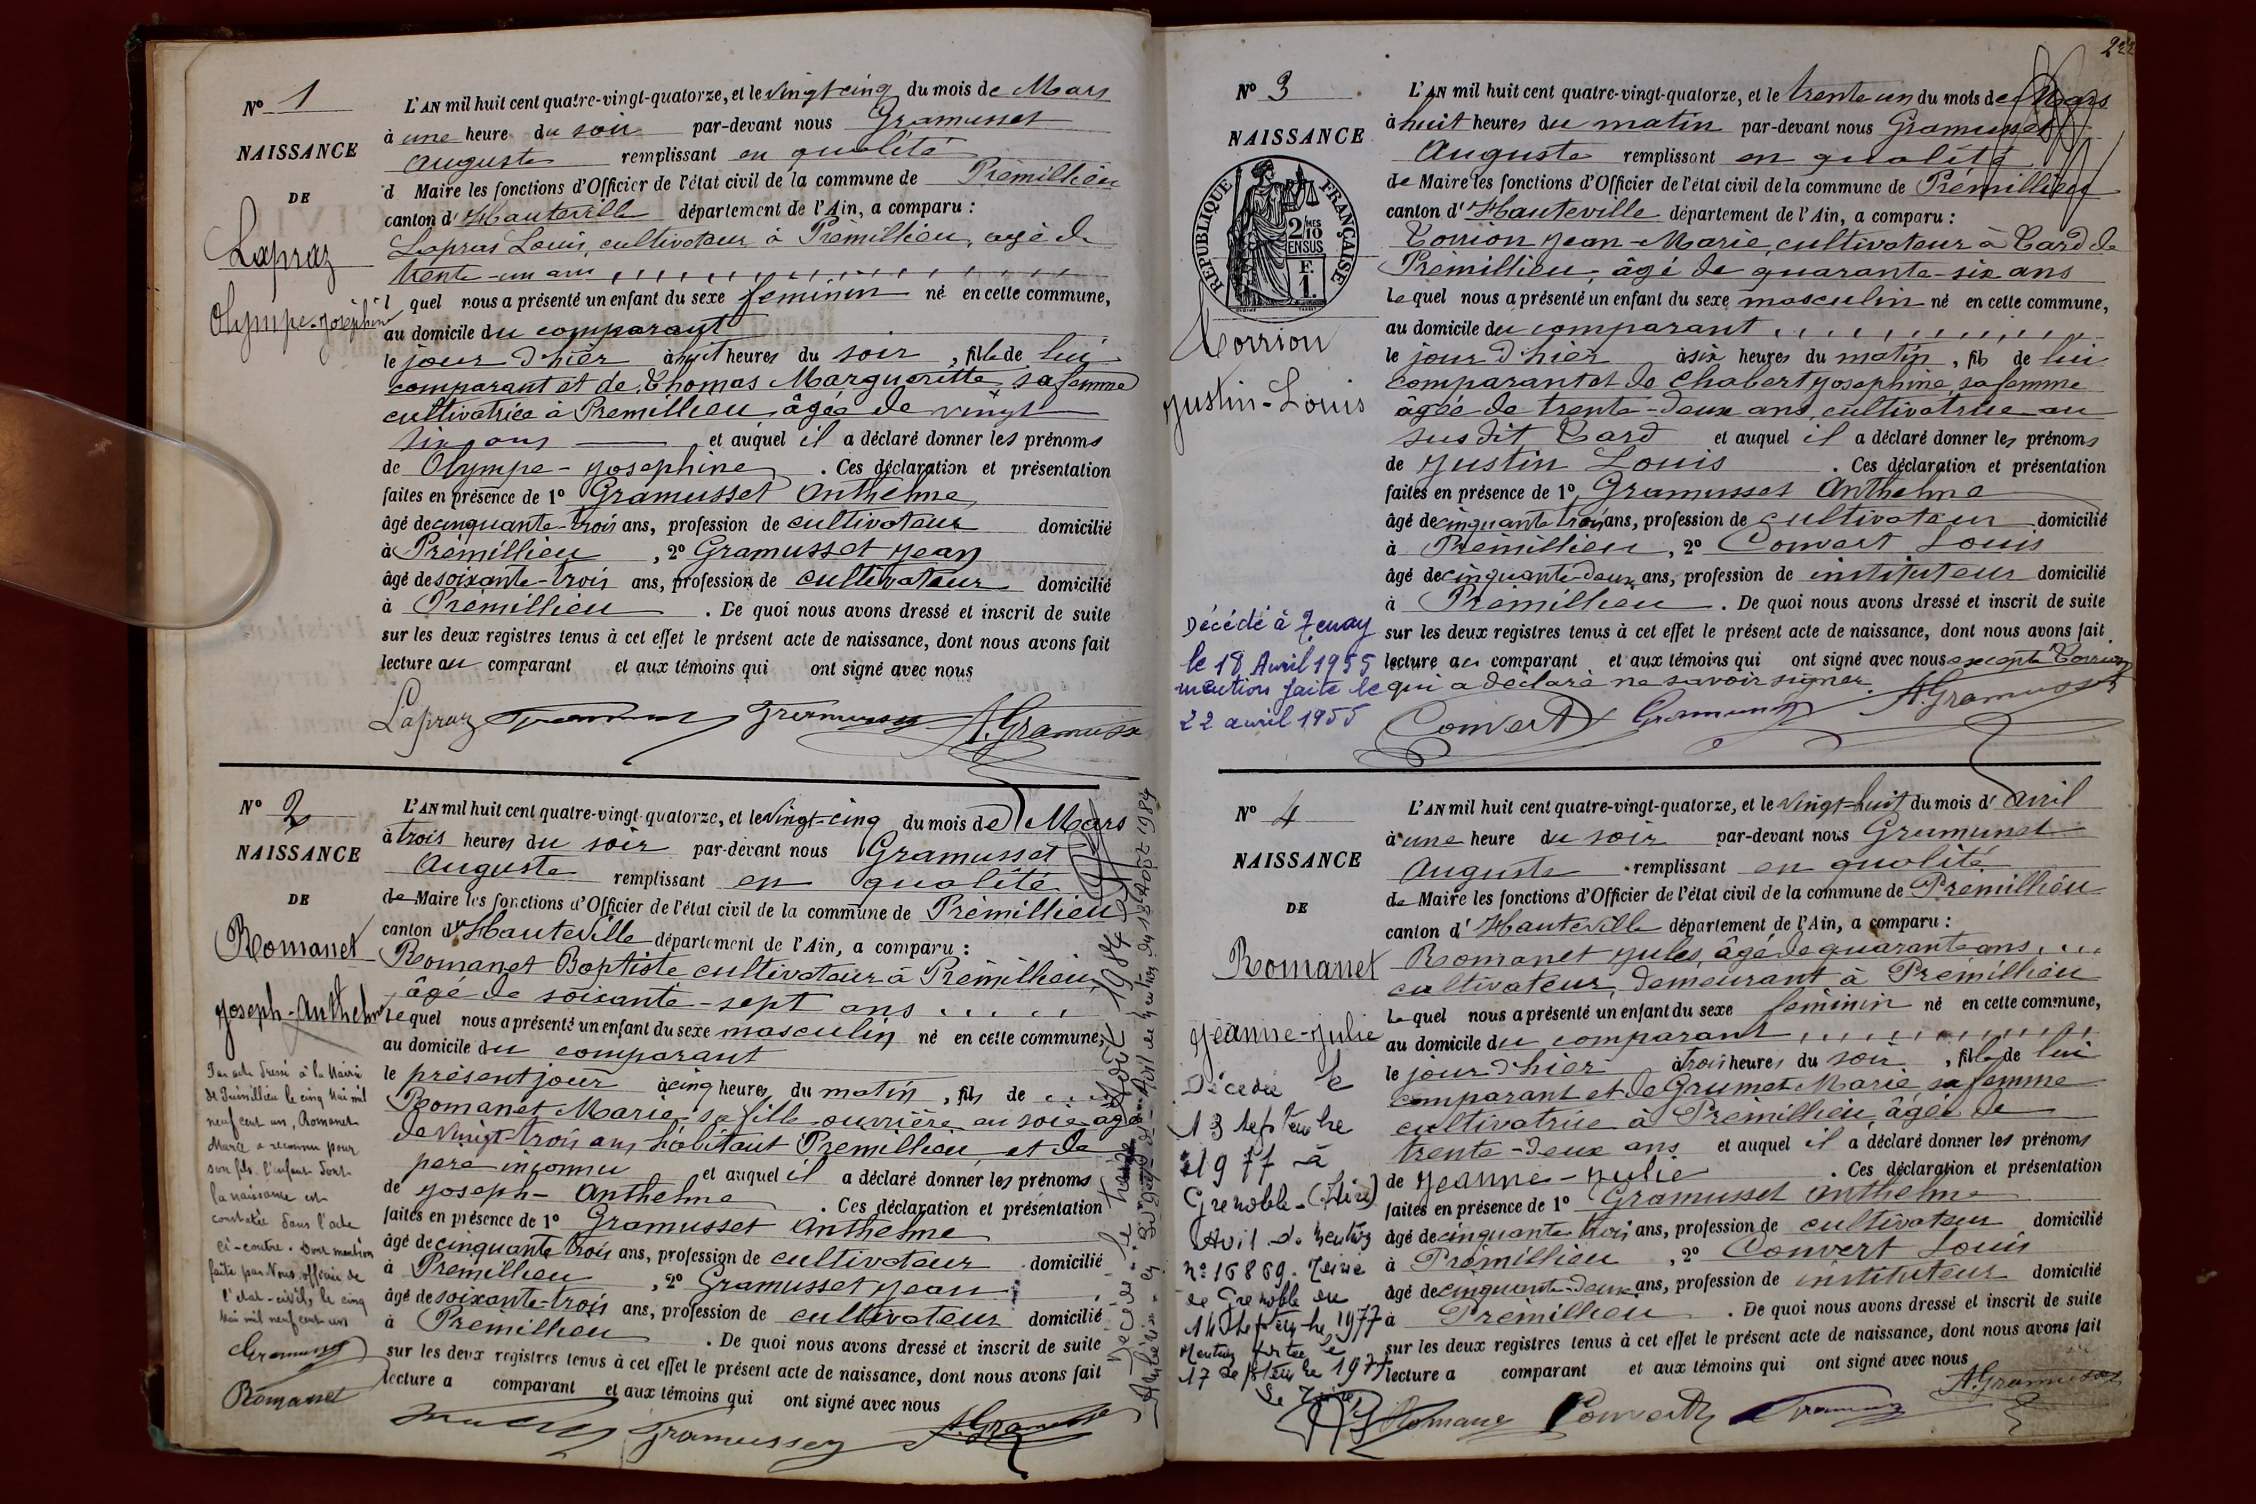 N° 1
NAISSANCE
DE
Lapraz
Olympe-Joséphine
L'AN mil huit cent quatre-vingt-quatorze, et le vingt-cinq du mois de Mars
à une heure du soir par-devant nous Gramusset
Auguste remplissant en qualité
d Maire les fonctions d'Officier de l'état civil de la commune de Prémillieu
canton d'Hauteville département de l'Ain, a comparu :
Lapras Louis, cultivateur à Prémillieu, agé de
trente-un ans
l quel nous a présenté un enfant du sexe feminin né en cette commune,
au domicile du comparant
le jour d'hier à huit heures du soir, fille de lui
comparant et de Thomas Margueritte, sa femme
cultivatrice à Premillieu, âgée de vingt
six ans et auquel il a déclaré donner les prénoms
de Olympe-Josephine. Ces déclaration et présentation
faites en présence de 1° Gramusset Anthelme
âgé de cinquante-trois ans, profession de cultivateur domicilié
à Prémillieu, 2° Gramusset Jean
âgé de soixante-trois ans, profession de cultivateur domicilié
à Prémillieu. De quoi nous avons dressé et inscrit de suite
sur les deux registres tenus à cet effet le présent acte de naissance, dont nous avons fait
lecture au comparant et aux témoins qui ont signé avec nous
Lapraz Gramusset A. Gramusset
N° 2
NAISSANCE
DE
Romanet
Joseph-Anthelme
Par acte dressé à la Mairie
de Prémillieu le cinq Mai mil
neuf cent un, Romanet
Marie a reconnu pour
son fils l'enfant dont
la naissance est
constatée dans l'acte
ci-contre. Dont mention
faite par Nous officier de
l'état-civil, le cinq
Mai mil neuf cent un
Gramusset
Romanet
L'AN mil huit cent quatre-vingt-quatorze, et le vingt-cinq du mois de Mars
à trois heures du soir par-devant nous Gramusset
Auguste remplissant en qualité
de Maire les fonctions d'Officier de l'état civil de la commune de Prémillieu
canton d'Hauteville département de l'Ain, a comparu :
Romanet Baptiste cultivateur à Prémillieu,
âgé de soixante-sept ans
lequel nous a présenté un enfant du sexe masculin né en cette commune,
au domicile du comparant
le présent jour à cinq heures du matin, fils de
Romanet Marie, sa fille ouvrière en soie agé
de vingt-trois ans, habitant Premillieu, et de
pere inconnu et auquel il a déclaré donner les prénoms
de Joseph-Anthelme. Ces déclaration et présentation
faites en présence de 1° Gramusset Anthelme
âgé de cinquante trois ans, profession de cultivateur domicilié
à Prémillieu, 2° Gramusset Jean
âgé de soixante-trois ans, profession de cultivateur domicilié
à Premillieu. De quoi nous avons dressé et inscrit de suite
sur les deux registres tenus à cet effet le présent acte de naissance, dont nous avons fait
lecture a comparant et aux témoins qui ont signé avec nous
Gramusset A. Gramusset
Décédé le treize Août 1984 à
Ambérieu en Bugey Avis de mention du 18 Août 1984
222
N° 3
NAISSANCE
RÉPUBLIQUE FRANÇAISE
2/10 MES
EN SUS
F.
1.
Torrion
Justin-Louis
Décédé à Tenay
le 18 Avril 1955
mention faite le
22 avril 1955
L'AN mil huit cent quatre-vingt-quatorze, et le trente un du mois de Mars
à huit heures du matin par-devant nous Gramusset
Auguste remplissant en qualité
de Maire les fonctions d'Officier de l'état civil de la commune de Prémillieu
canton d'Hauteville département de l'Ain, a comparu :
Torrion Jean-Marie, cultivateur à Tard de
Prémillieu, âgé de quarante-six ans
lequel nous a présenté un enfant du sexe masculin né en cette commune,
au domicile du comparant
le jour d'hier à six heures du matin, fils de lui
comparant et de Chabert Josephine, sa femme
âgée de trente-deux ans, cultivatrice au
susdit Tard et auquel il a déclaré donner les prénoms
de Justin Louis. Ces déclaration et présentation
faites en présence de 1° Gramusset Anthelme
âgé de cinquante trois ans, profession de cultivateur domicilié
à Prémillieu, 2° Convert Louis
âgé de cinquante-deux ans, profession de instituteur domicilié
à Prémillieu. De quoi nous avons dressé et inscrit de suite
sur les deux registres tenus à cet effet le présent acte de naissance, dont nous avons fait
lecture au comparant et aux témoins qui ont signé avec nous excepté Torrion
qui a déclaré ne savoir signer.
Convert Gramusset A. Gramusset
N° 4
NAISSANCE
DE
Romanet
Jeanne-Julie
Décédée le
13 septembre
1977 à
Grenoble-(Isère)
Avis de mention
n° 16869. Mairie
de Grenoble du
14 septembre 1977
Mention portée le
17 septembre 1977
Le Maire
L'AN mil huit cent quatre-vingt-quatorze, et le vingt-huit du mois d'Avril
à une heure du soir par-devant nous Gramusset
Auguste remplissant en qualité
de Maire les fonctions d'Officier de l'état civil de la commune de Prémillieu
canton d'Hauteville département de l'Ain, a comparu :
Romanet Jules, âgé de quarante ans,
cultivateur, demeurant à Prémillieu
lequel nous a présenté un enfant du sexe feminin né en cette commune,
au domicile du comparant
le jour d'hier à trois heures du soir, fille de lui
comparant et de Grumet Marie, sa femme
cultivatrice à Prémillieu, âgée de
trente-deux ans et auquel il a déclaré donner les prénoms
de Jeanne-Julie. Ces déclaration et présentation
faites en présence de 1° Gramusset Anthelme
âgé de cinquante trois ans, profession de cultivateur domicilié
à Prémillieu, 2° Convert Louis
âgé de cinquante-deux ans, profession de instituteur domicilié
à Prémillieu. De quoi nous avons dressé et inscrit de suite
sur les deux registres tenus à cet effet le présent acte de naissance, dont nous avons fait
lecture a comparant et aux témoins qui ont signé avec nous
Romanet Convert Gramusset A. Gramusset